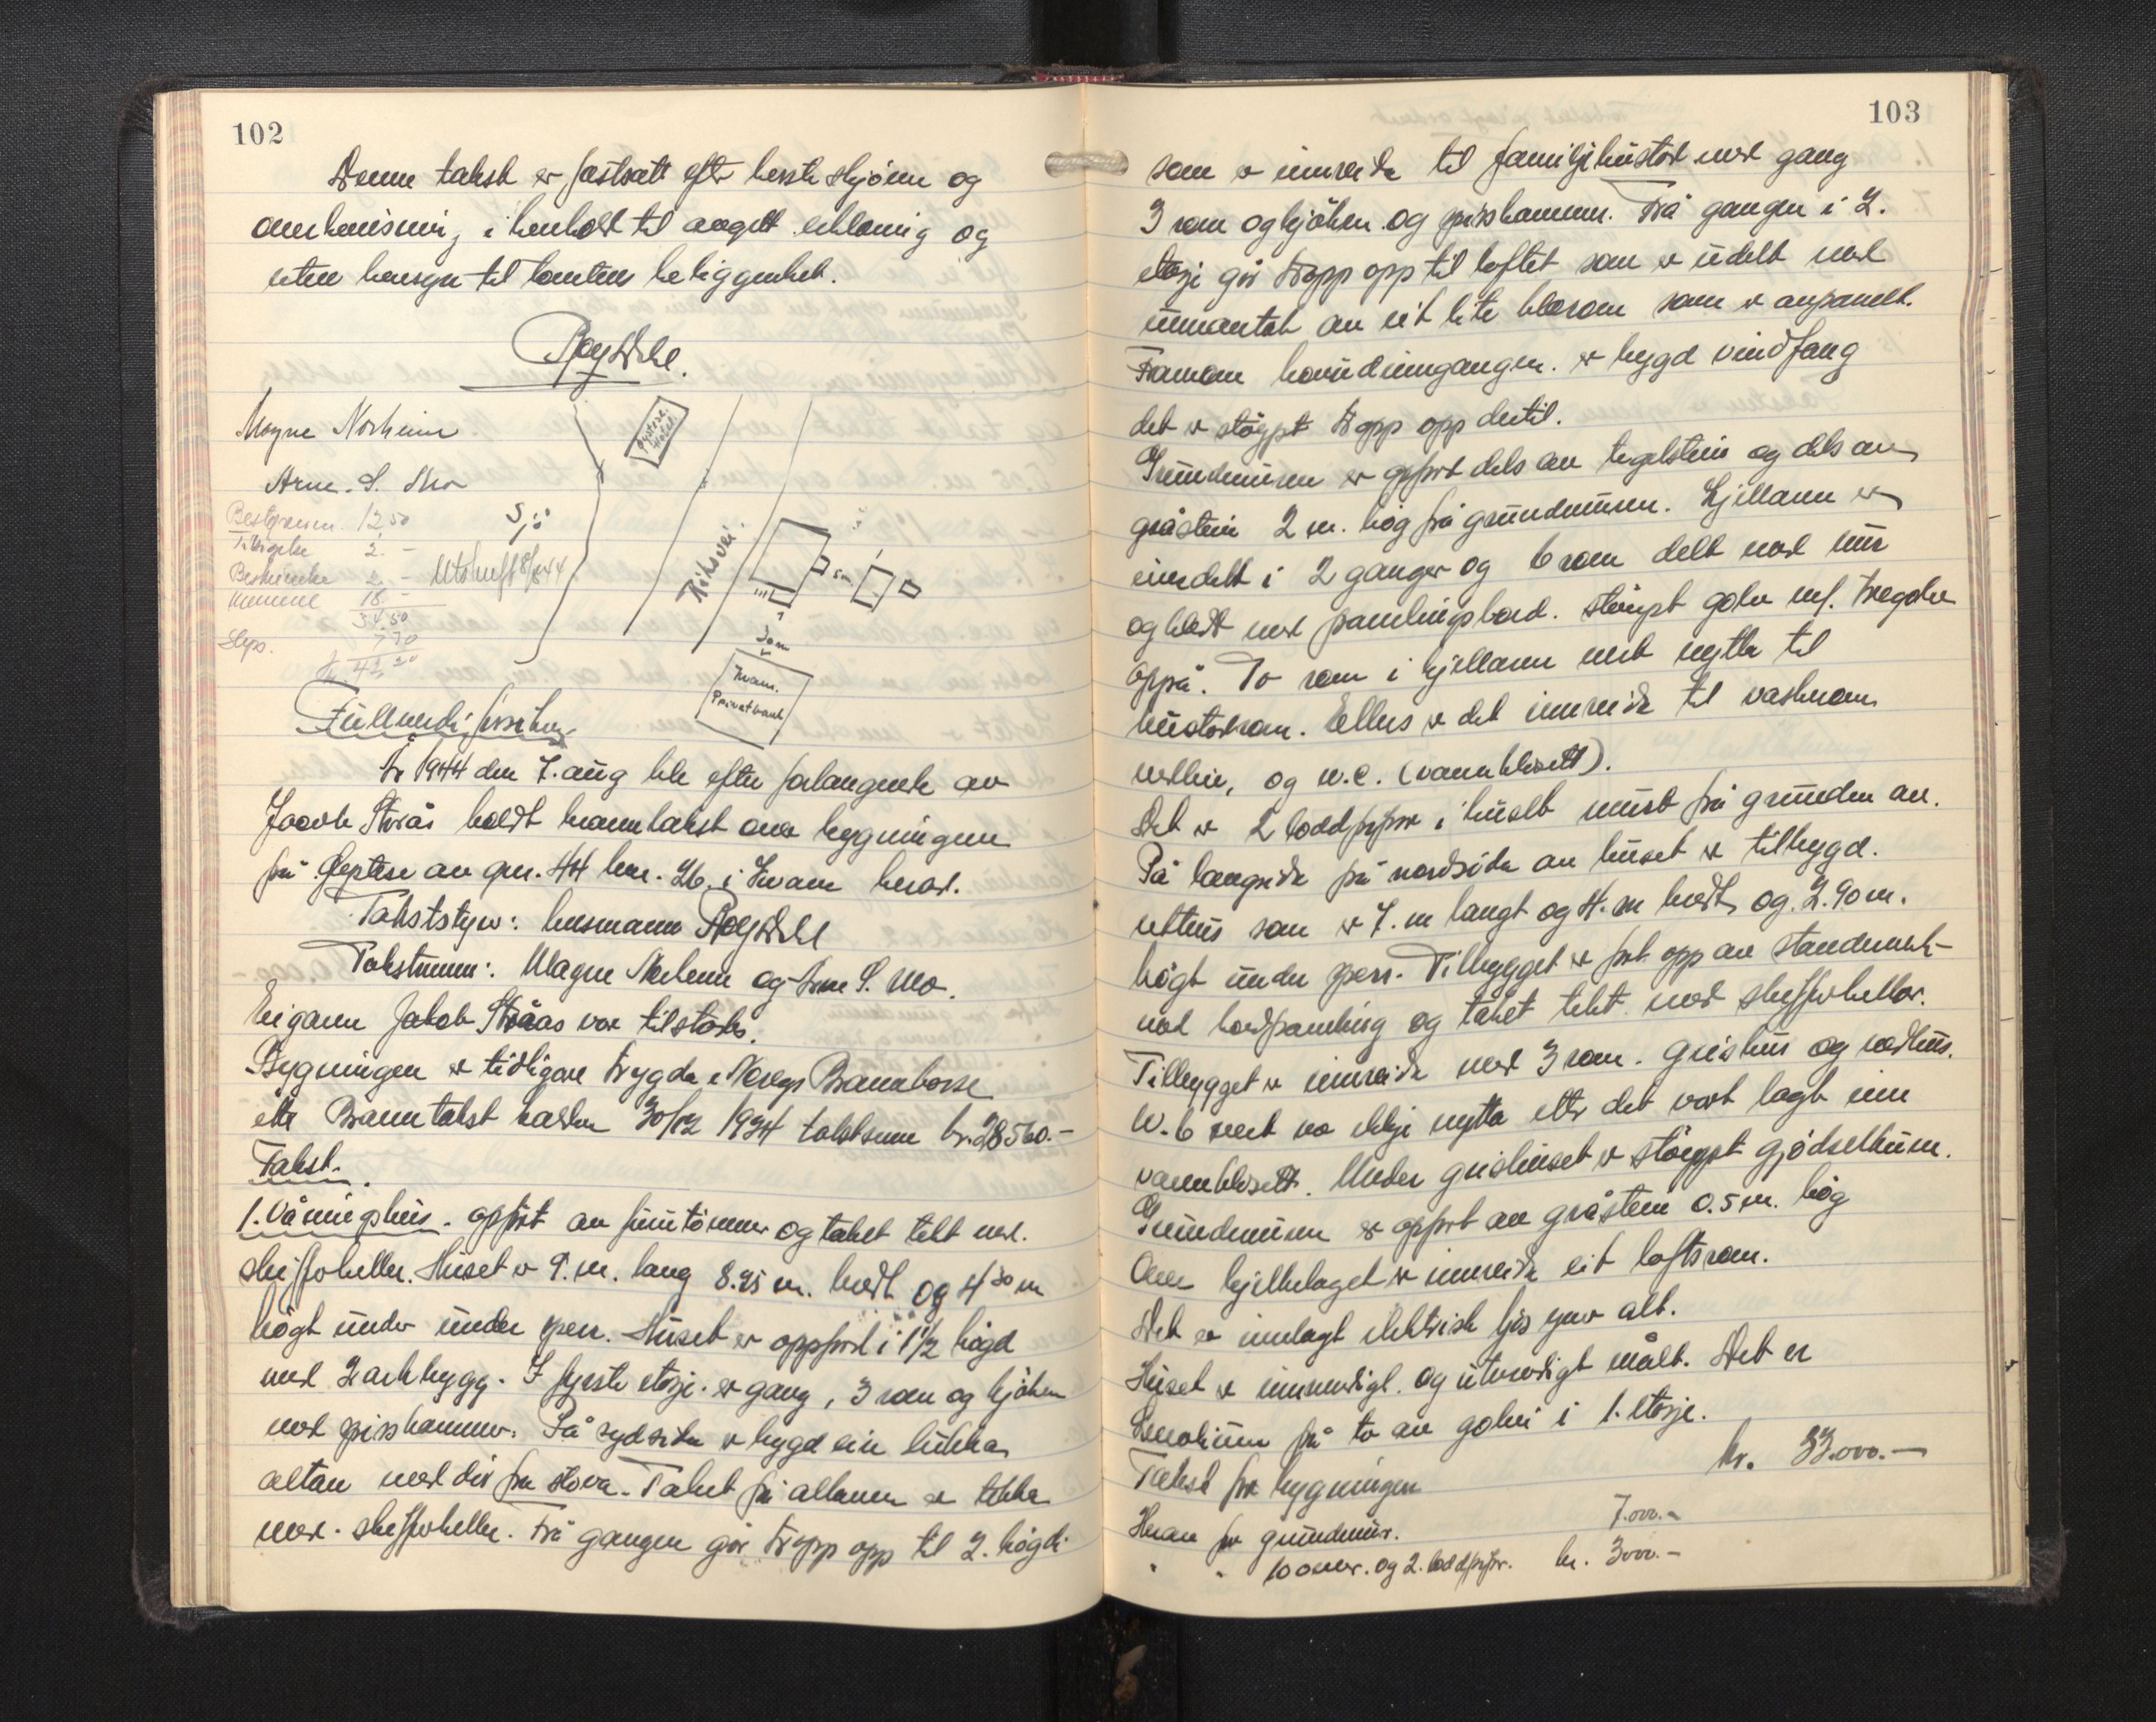 102
Denne takst er fastsatt efter beste skjønn og
overbevisning i henhold til avgitt erklæring og
uten hensyn til tomtens beliggenhet.
Magne Norheim
Arne S. Mo
12.50
Tilsigelse 2. -
Beskrivelse 2. -
18 -
34.50
Skyss. 7.70
kr. 42.20
Utskrift 8/8 44
Sjø
Øystese
Hotel
Riksvei
5 m
30 m
Kvam.
Privatbank
Fullverdiforsikring
År 1944 den 7. aug ble efter forlangende av
Jacob Strås holdt branntakst over bygningen
på av gnr. 44 bnr. 26. i Kvam herad.
Takststyrer: lensmann
Takstmenn: Magne Norheim og Arne S. Mo.
Eigaren Jakob Stråas var tilstades.
Bygningen er tidligare trygda i Noregs Brannkasse
etter Branntakst halden 30/12 1934 takstsum kr. 28560.-
Takst.
1. Våningshus. oppført av furutømmer og taket tekt med.
skifferheller. Huset er 9. m. lang 8.95 m. bredt og 4.30 m
høgt under under sperr. Huset er oppført i 1 1/2 høgd
med 2 arkbygg. I fyrste etasje. er gang, 3 rom og kjøken
med spiskammer. På sydsida er bygd ein lukka
altan med dør fra stova. Taket på altanen er tekka
med. skifferheller. Frå gangen går tropp opp til 2. høgdi
103
som er innreida til familjehustod med gang
3 rom og kjøken og spiskammer. Frå gangen i 2.
etasje går tropp opp til loftet som er udelt med
unnantak av eit lite klærom som er avpanelt.
Framom hovudinngangen. er bygd vindfang
det er støypt tropp opp dertil.
Grunnmuren er oppført dels av teglstein og dels av
gråstein 2 m. høg frå grunnmuren. Kjellaren er
inndelt i 2 ganger og 6 rom delt med mur
og kledt med panelingsbord. støypt golv m/. tregolv
oppå. To rom i kjellaren vert nytta til
hustodrom. Ellers er det innreida til vaskerom
vedbu, og w.c. (vannklosett).
Det er 2 loddpiper i huset murt frå grunden av.
På langside på nordsida av huset er tilbygd.
uthus som er 7. m langt og 4. m bredt og. 2.90 m.
høgt under sperr. Tilbygget er ført opp av standerverk
med bordpaneling og taket tekt med skifferheller.
Tilbygget er innreida med 3 rom. grishus og vedhus.
W.C. vert no ikkje nytta etter det vart lagt inn
vannklosett. Under grishuset er støypt gjødselkum.
Grunnmuren er oppført av gråstein 0.5 m. høg
Over bjelkelaget er innreida eit loftsrom.
Det er innlagt elektrisk ljos yver alt.
Huset er innvendigt. og utvendigt målt. Det er
Linoleum på to av golvi i 1. etasje.
Takst for bygningen kr. 33.000.-
Herav for grunnmur. 7.000.-
" " ovner. og 2. loddpiper. kr. 3000.-